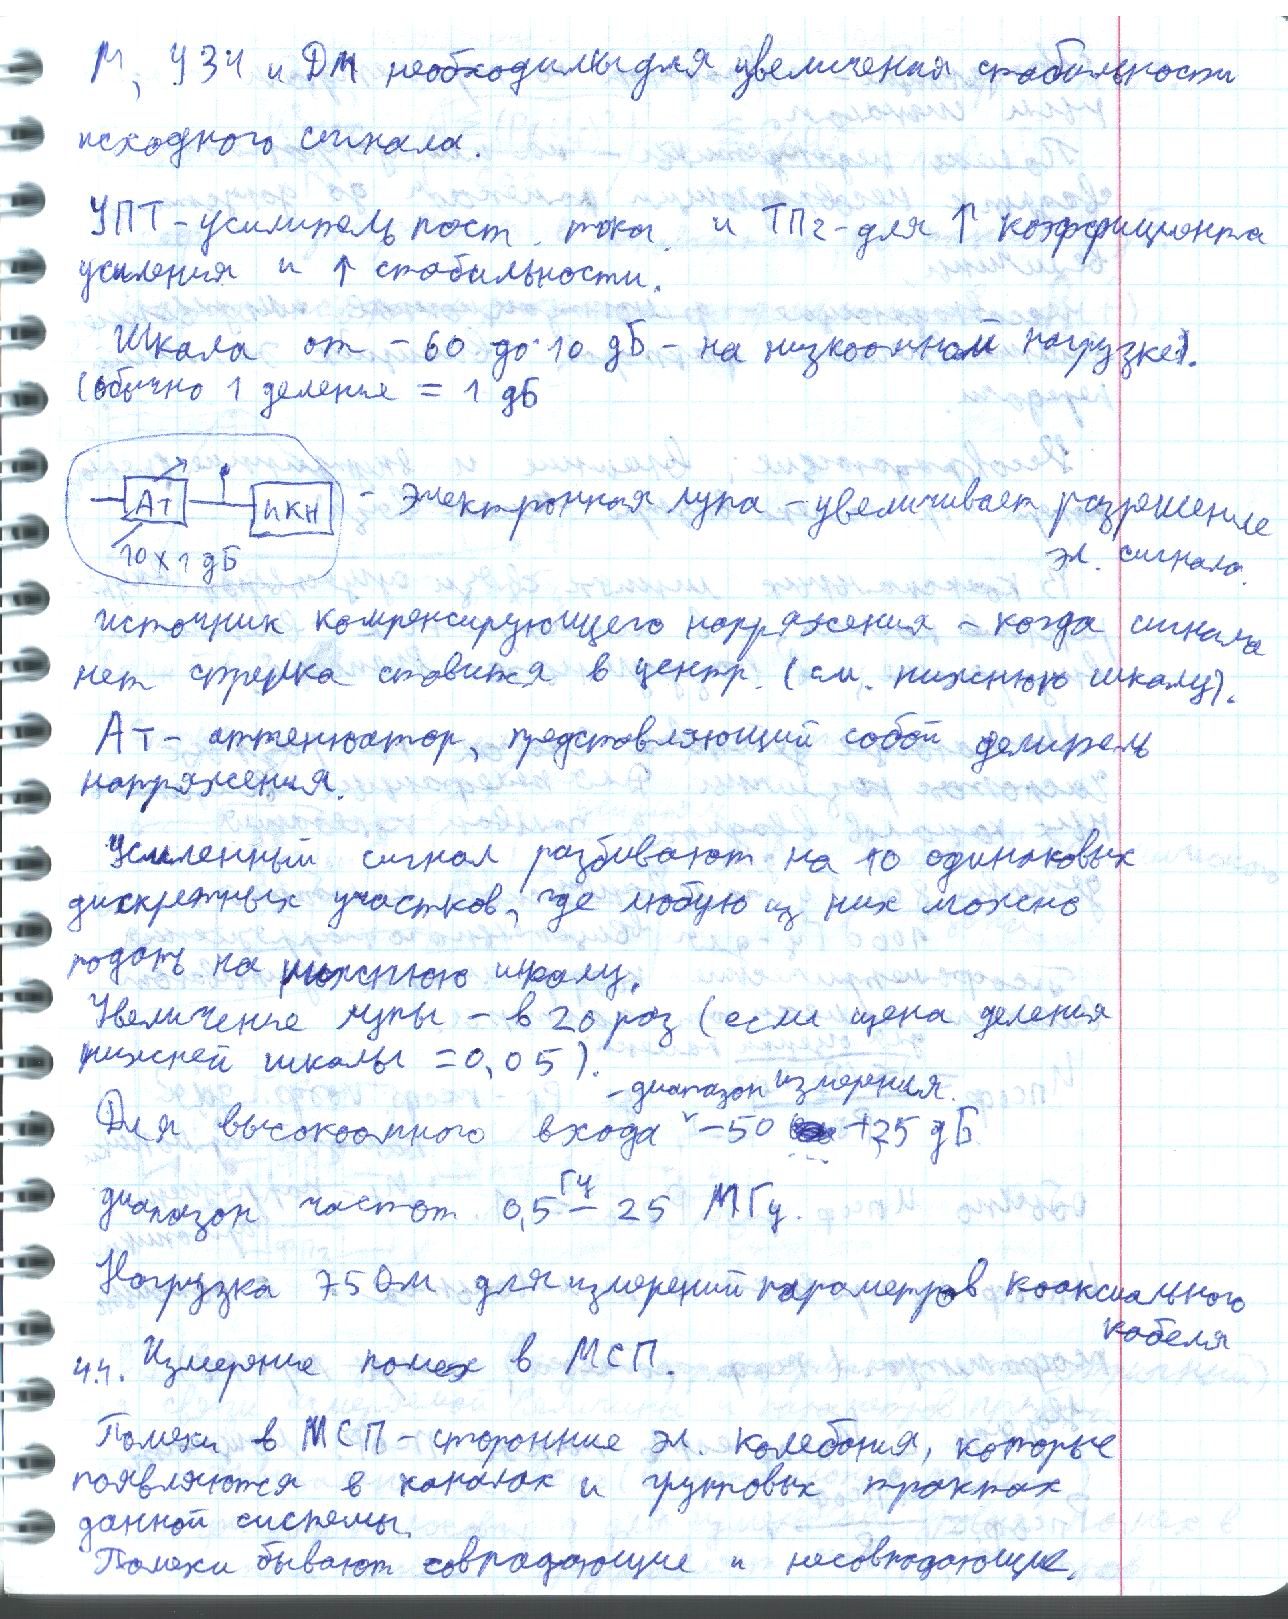 М, УЗЧ и ДМ необходимы для увеличения стабильности
исходного сигнала.
УПТ - усилитель пост. тока. и ТПг - для ↑ коэффициента
усиления и ↑ стабильности.
Шкала от - 60 до 10 дБ - на низкоомной нагрузке).
(обычно 1 деление = 1 дБ
Ат
ИКН
10 х 1 дБ
- Электронная лупа - увеличивает разрешение
эл. сигнала.
источник компенсирующего напряжения - когда сигнала
нет стрелка ставится в центр. (см. нижнюю шкалу).
Ат - аттенюатор, представляющий собой делитель
напряжения.
Усиленный сигнал разбивают на 10 одинаковых
дискретных участков, где любую из них можно
подать на нижнюю шкалу.
Увеличение лупы - в 20 раз (если цена деления
нижней шкалы = 0,05).
- диапазон измерения.
Для высокоомного входа - 50 +25 дБ
диапазон частот 0,5 Гц - 25 МГц.
Нагрузка 75 Ом для измерений параметров коаксиального
кабеля
4.4. Измерение помех в МСП.
Помехи в МСП - сторонние эл. колебания, которые
появляются в каналах и групповых трактах
данной системы.
Помехи бывают совпадающие и несовпадающие.